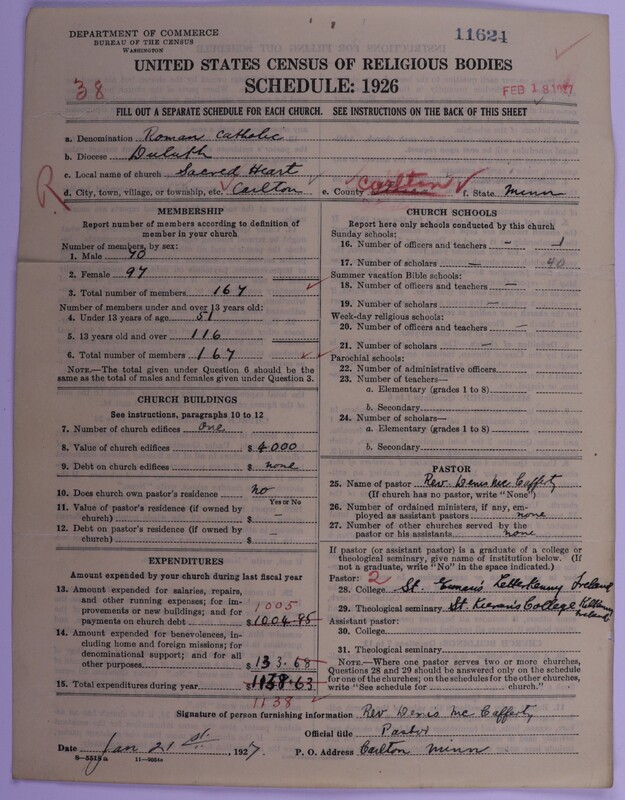 DEPARTMENT OF COMMERCE
BUREAU OF THE CENSUS
WASHINGTON
11624
UNITED STATES CENSUS OF RELIGIOUS BODIES
SCHEDULE: 1926
38
FEB 18 1927
FILL OUT A SEPARATE SCHEDULE FOR EACH CHURCH. SEE INSTRUCTIONS ON THE BACK OF THIS SHEET
a. Denomination Roman Catholic
b. Diocese Duluth
c. Local name of church Sacred Heart
R
d. City, town, village, or township, etc. Carlton e. County Carlton f. State Minn
MEMBERSHIP
Report number of members according to definition of
member in your church
Number of members, by sex:
1. Male 70
2. Female 97
3. Total number of members 167
Number of members under and over 13 years old:
4. Under 13 years of age 51
5. 13 years old and over 116
6. Total number of members 167
NOTE.—The total given under Question 6 should be
same as the total of males and females given under Question 3.
CHURCH BUILDINGS
See instructions, paragraphs 10 to 12
7. Number of church edifices One
8. Value of church edifices $ 4000
9. Debt on church edifices $ none
10. Does church own pastor's residence no
Yes or No
11. Value of pastor's residence (if owned by
church) $ —
12. Debt on pastor's residence (if owned by
church) $ —
EXPENDITURES
Amount expended by your church during last fiscal year
13. Amount expended for salaries, repairs,
and other running expenses; for im-
provements or new buildings; and for
1005
payments on church debt $ 1004.95
14. Amount expended for benevolences,
including home and foreign missions; for
denominational support; and for all
other purposes $ 133.68
15. Total expenditures during year $ 1138.63
1138
CHURCH SCHOOLS
Report here only schools conducted by this church
Sunday schools:
16. Number of officers and teachers — 1
17. Number of scholars — 40
Summer vacation Bible schools:
18. Number of officers and teachers —
19. Number of scholars —
Week-day religious schools:
20. Number of officers and teachers —
21. Number of scholars —
Parochial schools:
22. Number of administrative officers
23. Number of teachers—
a. Elementary (grades 1 to 8)
b. Secondary
24. Number of scholars—
a. Elementary (grades 1 to 8)
b. Secondary
PASTOR
25. Name of pastor Rev. Denis Mc Cafferty
(If church has no pastor, write "None")
26. Number of ordained ministers, if any, em-
ployed as assistant pastors none
27. Number of other churches served by the
pastor or his assistants none
If pastor (or assistant pastor) is a graduate of a college or
theological seminary, give name of institution below. (If
not a graduate, write "No" in the space indicated.)
Pastor: 2
28. College St. Letterkenny Ireland
29. Theological seminary St. Kieran's College Kilkenny
Ireland
Assistant pastor:
30. College
31. Theological seminary
NOTE.—Where one pastor serves two or more churches,
Questions 28 and 29 should be answered only on the schedule
for one of the churches; on the schedules for the other churches,
write "See schedule for church."
Signature of person furnishing information Rev Denis Mc Cafferty
Official title Pastor
Date Jan 21 st, 1927 P. O. Address Carlton Minn